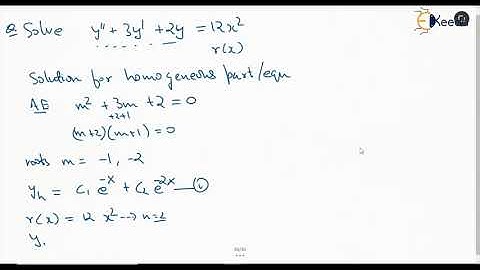 Q Solve y'' + 3y' + 2y = 12x²
r(x)
Solution for homogeneous part/eqn
AE m² + 3m + 2 = 0
+2+1
(m+2)(m+1)=0
roots m = -1, -2
y_h = c₁ e^{-x} + c₂ e^{-2x}
r(x) = 12 x² → n=2
y